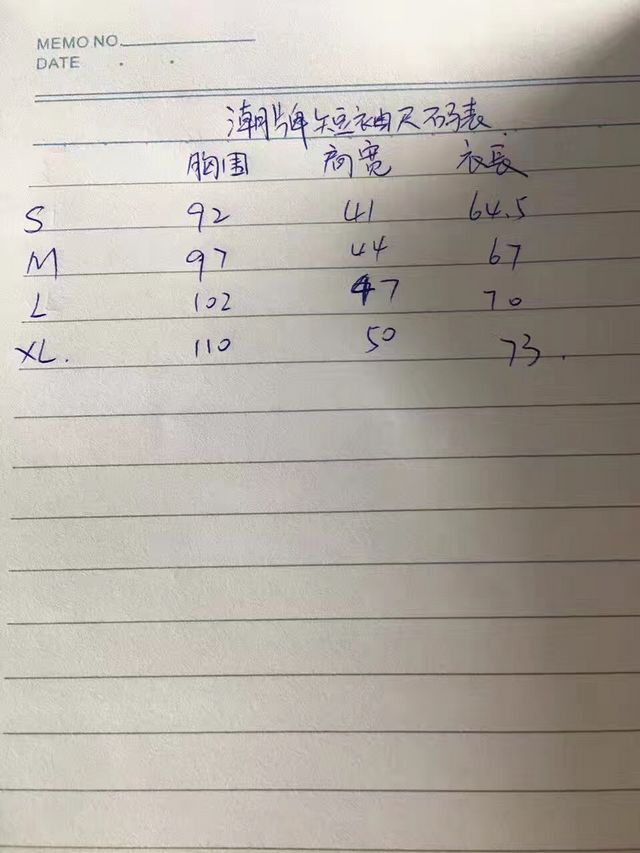 MEMO NO.
DATE . .
潮牌短袖尺码表.
胸围 肩宽 衣長
S 92 41 64.5
M 97 44 67
L 102 47 70
XL. 110 50 73.